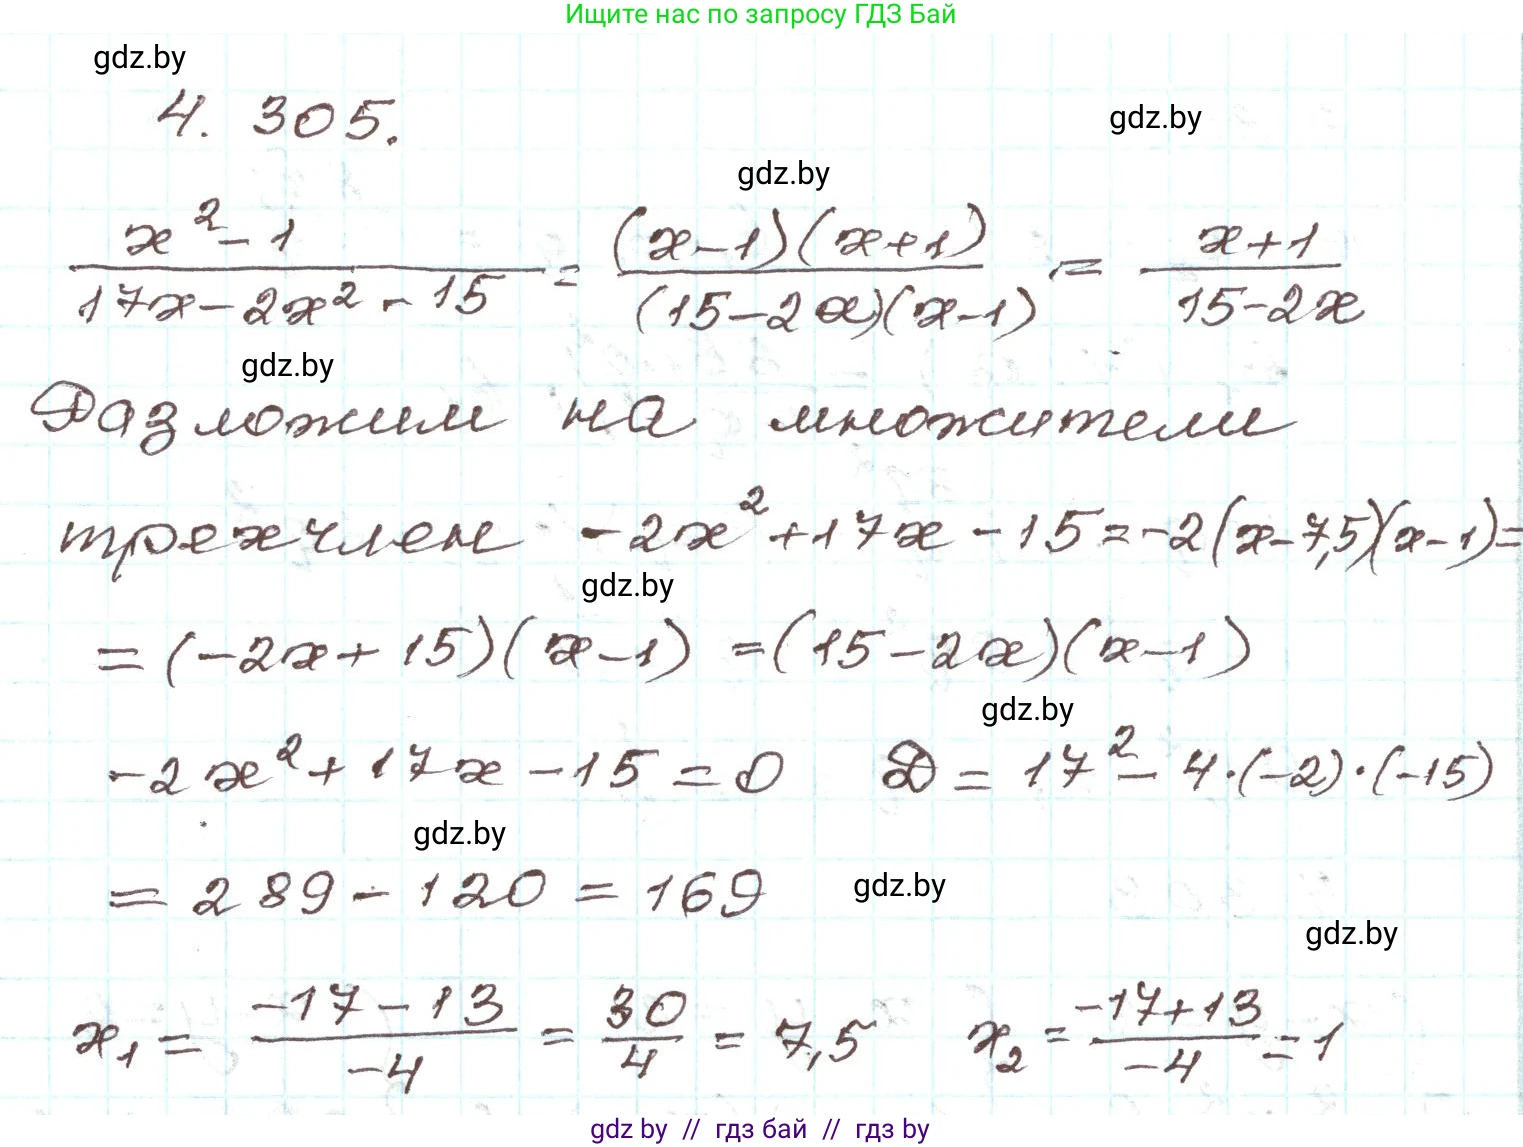 Ищите нас по запросу ГДЗ Бай
gdz.by
4. 305.
gdz.by
gdz.by
(x² - 1)/(17x - 2x² - 15) = ((x-1)(x+1))/((15-2x)(x-1)) = (x+1)/(15-2x)
gdz.by
Разложим на множители
трехчлен -2x² + 17x - 15 = -2(x-7,5)(x-1) =
gdz.by
= (-2x + 15)(x-1) = (15-2x)(x-1)
gdz.by
-2x² + 17x - 15 = 0 D = 17² - 4·(-2)·(-15)
gdz.by
= 289 - 120 = 169
gdz.by
gdz.by
x₁ = (-17-13)/(-4) = 30/4 = 7,5 x₂ = (-17+13)/(-4) = 1
gdz by // гдз бай // гдз by